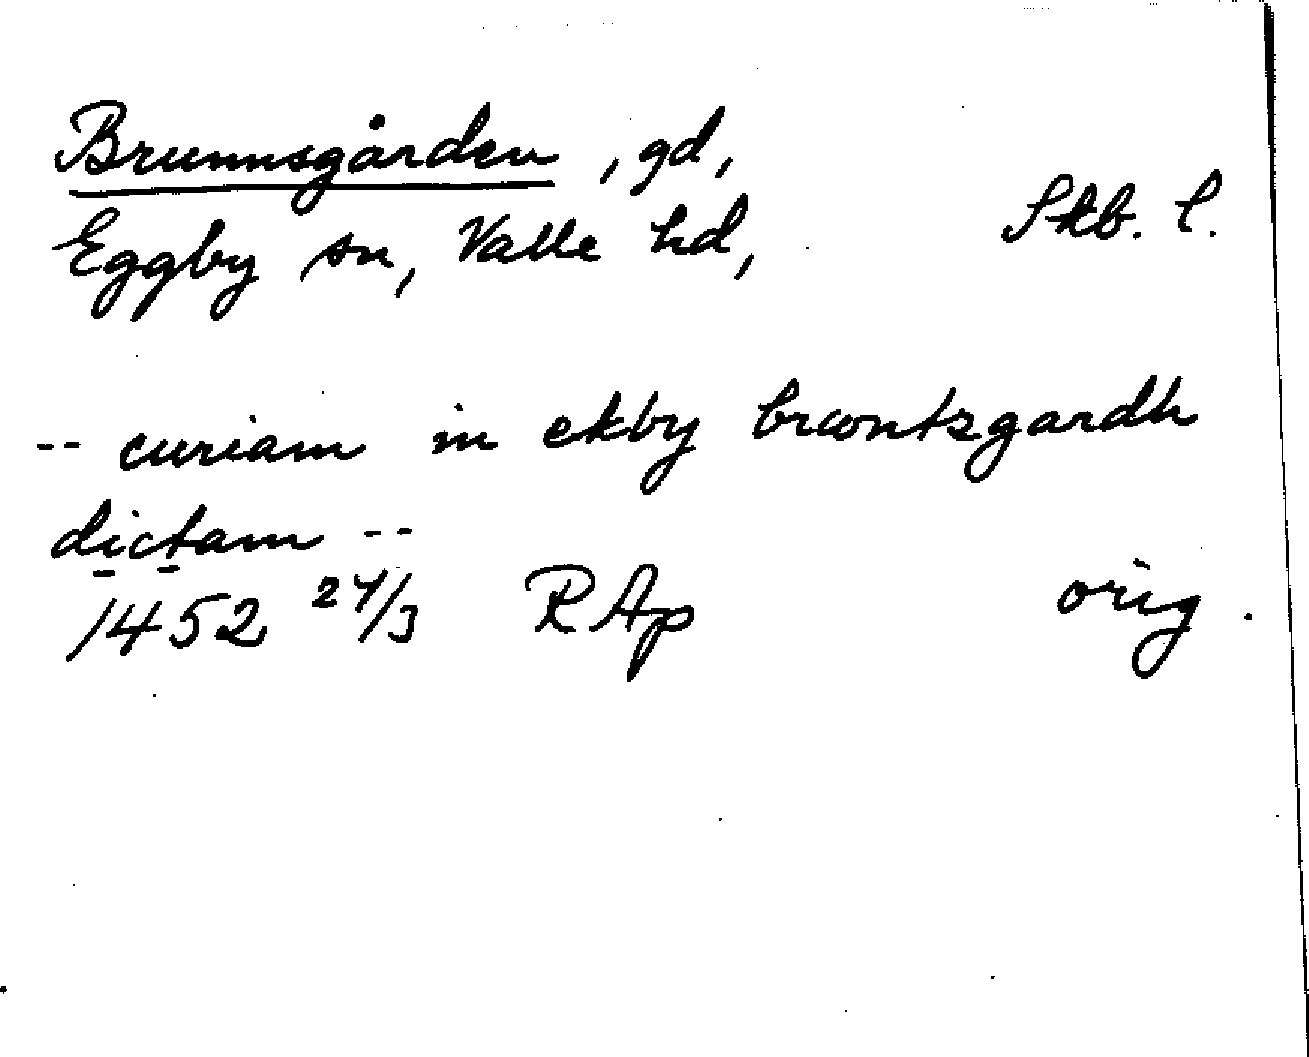 Brunnsgården, gd,
Eggby sn, Valle hd, Skb. l.
-- curiam in ekby brwntzgardh
dictam --
1452 24/3 RAp orig.